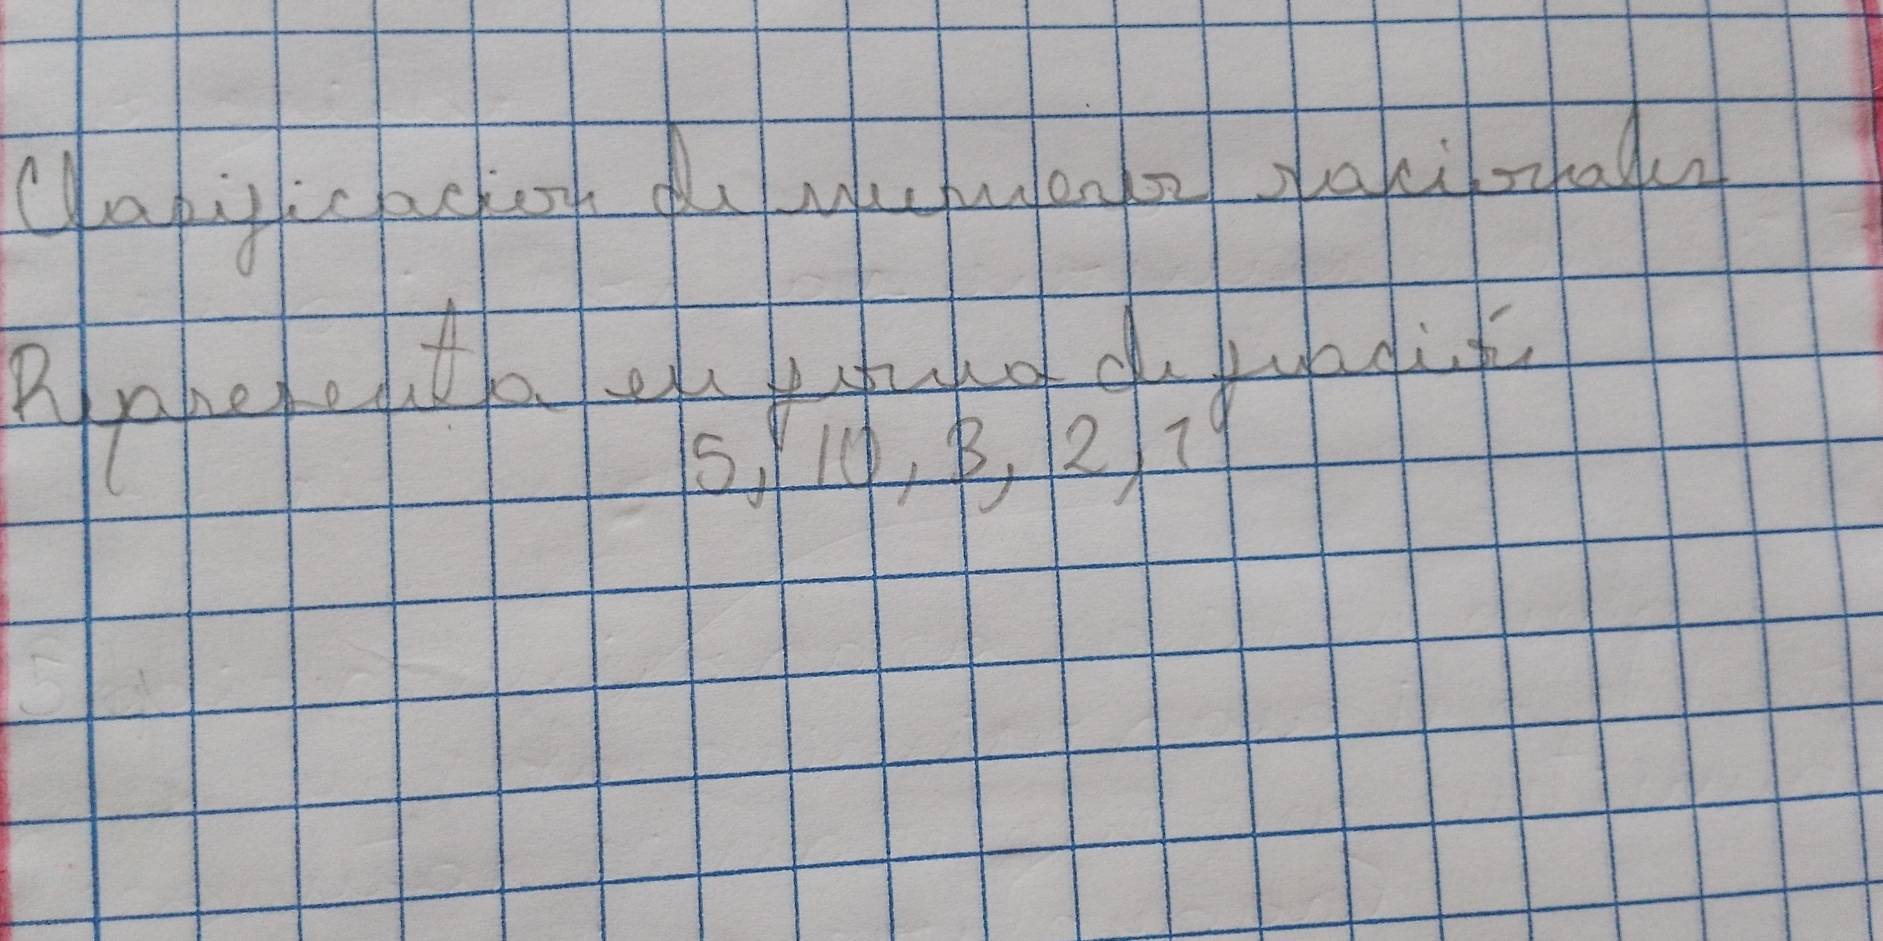 Clasificacion de numeros racionales
Representa en forma de fracción
5, 10, 3, 2, 1